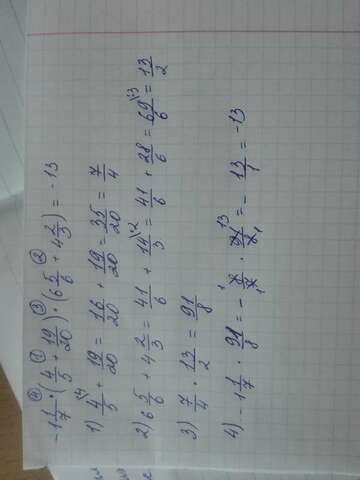 ④ ① ③ ②
-1 1/7 · (4/5 + 19/20) · (6 5/6 + 4 2/3) = -13
1) 4/5 \4 + 19/20 = 16/20 + 19/20 = 35/20 = 7/4
2) 6 5/6 + 4 2/3 = 41/6 + 14/3 \·2 = 41/6 + 28/6 = 69/6 \:3 = 13/2
3) 7/4 · 13/2 = 91/8
4) -1 1/7 · 91/8 = - 1 8/7 1 · 91/8 13 1 = - 13/1 = -13